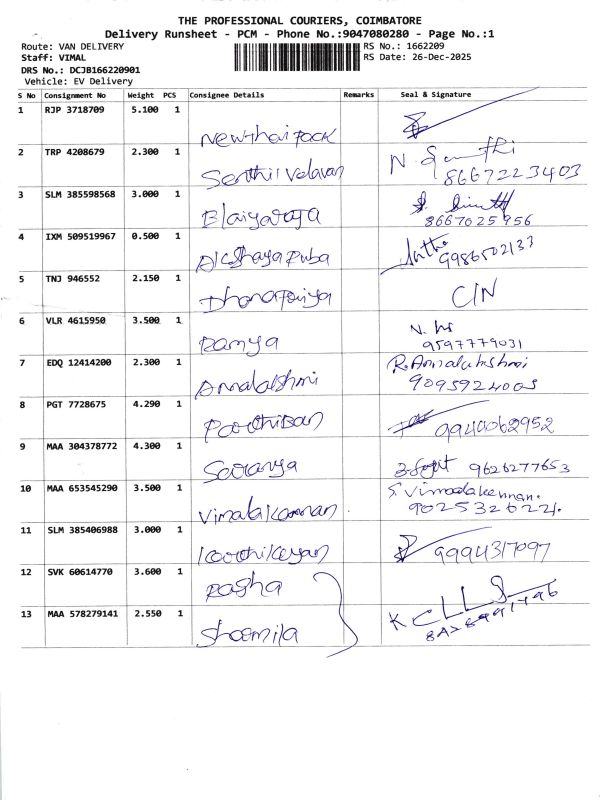 THE PROFESSIONAL COURIERS, COIMBATORE
Delivery Runsheet - PCM - Phone No.:9047080280 - Page No.:1
Route: VAN DELIVERY
RS No.: 1662209
Staff: VIMAL
RS Date: 26-Dec-2025
DRS No.: DCJB166220901
Vehicle: EV Delivery
S No Consignment No Weight PCS Consignee Details Remarks Seal & Signature
1 RJP 3718709 5.100 1 Newthai Pack
2 TRP 4208679 2.300 1 Senthil Velavan
8667223403
3 SLM 385598568 3.000 1 Elaiyaraja
8667025956
4 IXM 509519967 0.500 1 Akshaya Puba
9986502133
5 TNJ 946552 2.150 1 C/N
6 VLR 4615950 3.500 1 Ramya
9597779031
7 EDQ 12414200 2.300 1 Annalakshmi R. Annalakshmi
9095924005
8 PGT 7728675 4.290 1 Parthiban 9944062952
9 MAA 304378772 4.300 1 Saranya 9626277653
10 MAA 653545290 3.500 1 Vimala Kannan S. Vimalakannan.
9025326221.
11 SLM 385406988 3.000 1 Karthikeyan 9994317097
12 SVK 60614770 3.600 1 Rasha
13 MAA 578279141 2.550 1 Sharmila